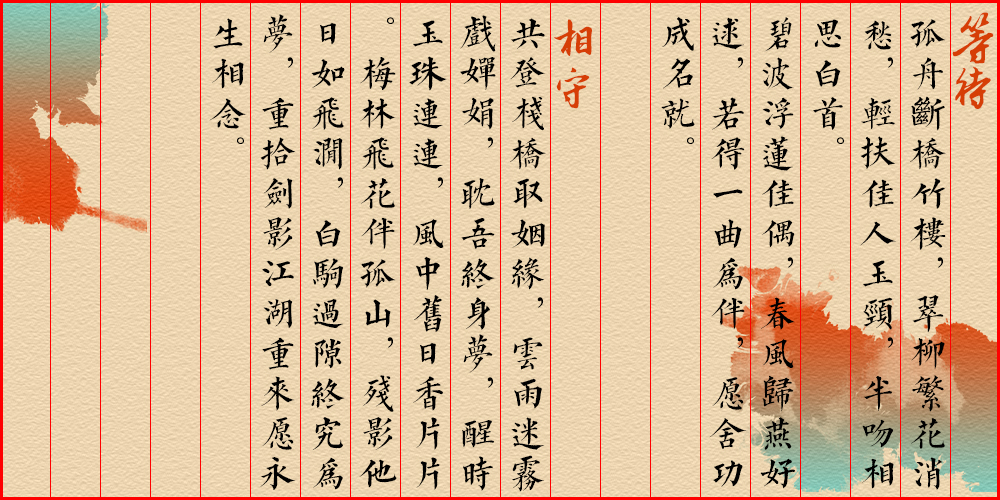 等待
孤舟斷橋竹樓，翠柳繁花消
愁，輕扶佳人玉頸，半吻相
思白首。
碧波浮蓮佳偶，春風歸燕好
逑，若得一曲爲伴，愿舍功
成名就。
相守
共登棧橋取姻緣，雲雨迷霧
戲嬋娟，耽吾終身夢，醒時
玉珠連連，風中舊日香片片
。梅林飛花伴孤山，殘影他
日如飛澗，白駒過隙終究爲
夢，重拾劍影江湖重來愿永
生相念。